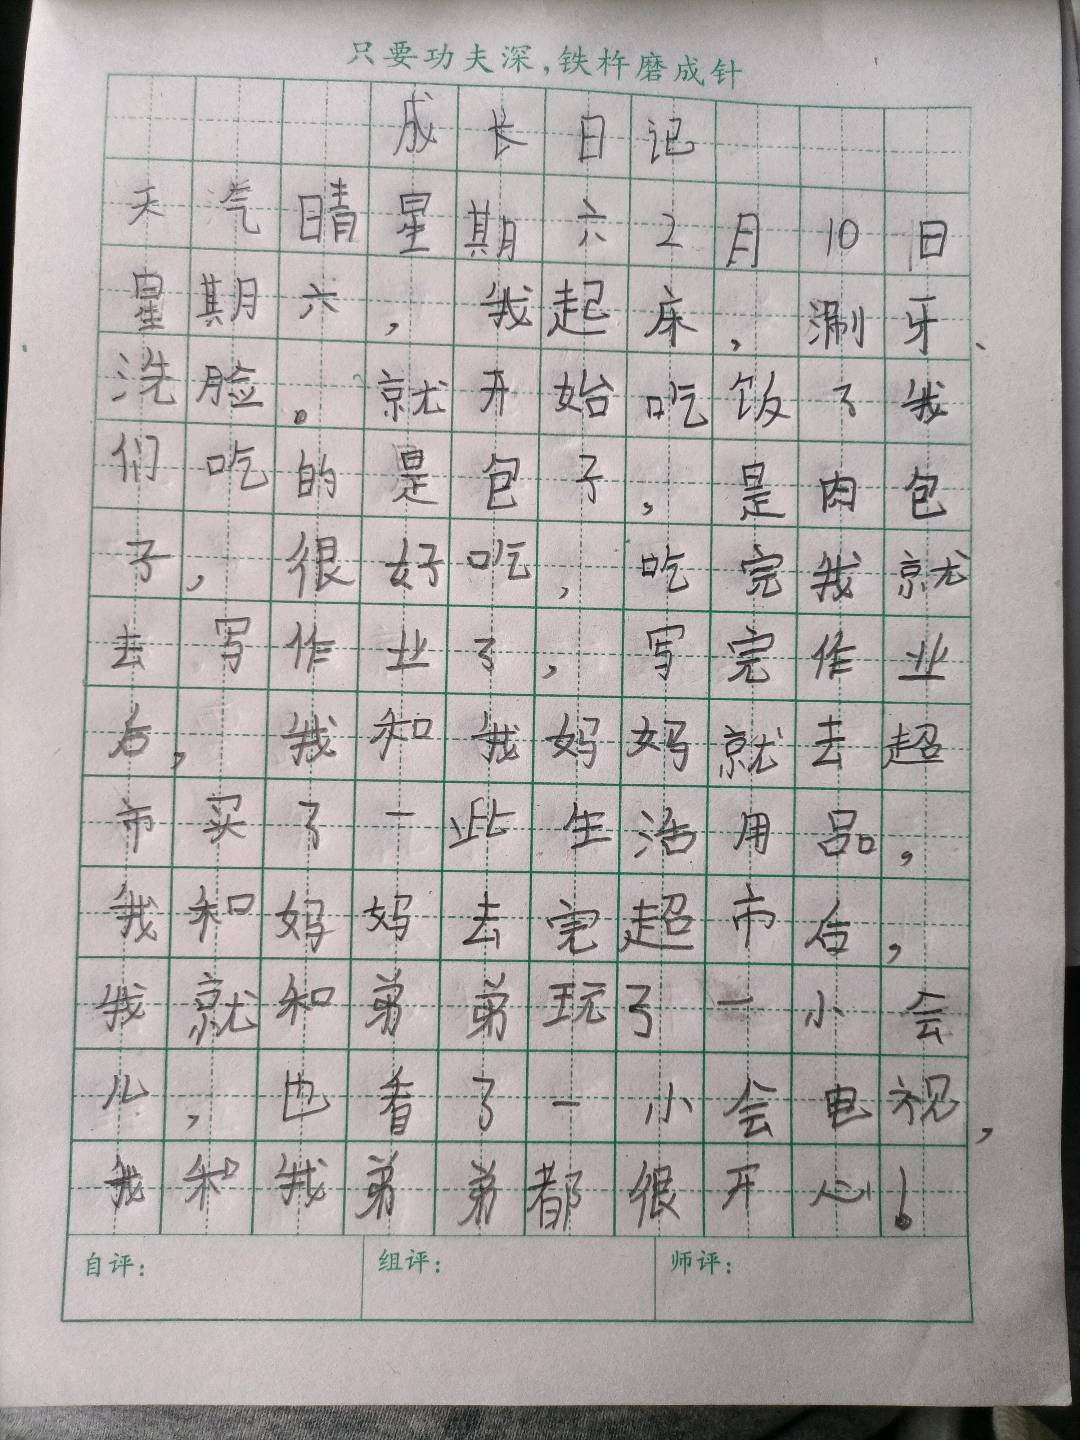 只要功夫深,铁杵磨成针
成长日记
天汽晴星期六2月10日
星期六,我起床,涮牙、
洗脸。就开始吃饭了我
们吃的是包子,是肉包
子,很好吃,吃完我就
去写作业了,写完作业
后,我和我妈妈就去超
市买了一些生活用品,
我和妈妈去完超市后,
我就和弟弟玩了一小会
儿,也看了一小会电视,
我和我弟弟都很开心!
自评: 组评: 师评: